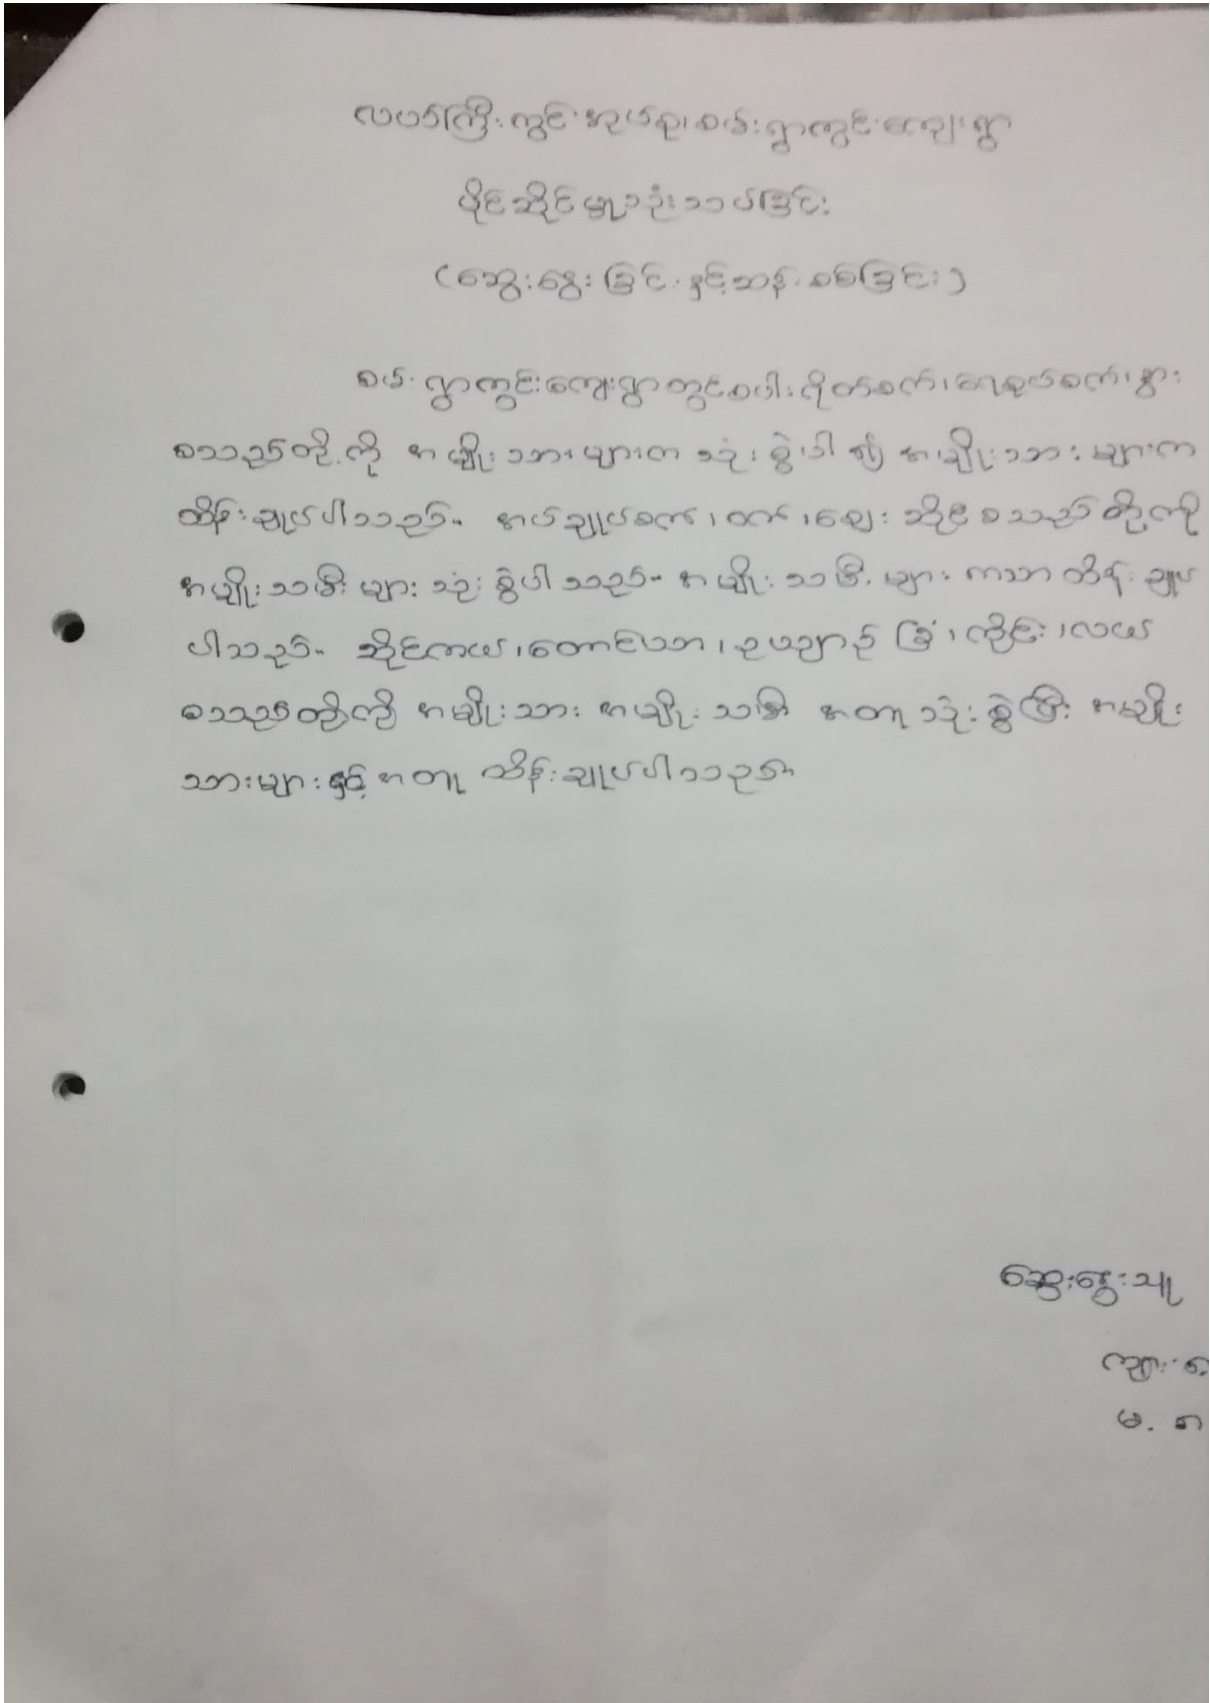 လပတ်ကြီးကွင်းအုပ်စု၊ စမ်းရွာကွင်းကျေးရွာ
ပိုင်ဆိုင်မှုသုံးသပ်ခြင်း
(ဆွေးနွေးခြင်းနှင့်ဆန်းစစ်ခြင်း)
စမ်းရွာကွင်းကျေးရွာတွင်စပါးရိုတ်စက်၊ရေစုပ်စက်၊နွား
စသည်တို့ကို အမျိုးသားများက သုံးစွဲပါ၍ အမျိုးသားများက
ထိန်းချုပ်ပါသည်။ အပ်ချုပ်စက်၊ဝက်၊ဈေးဆိုင်စသည်တို့ကို
အမျိုးသမီးများ သုံးစွဲပါသည်။ အမျိုးသမီးများ ကသာထိန်းချုပ်
ပါသည်။ ဆိုင်ကယ်၊တောင်ယာ၊ဥယျာဉ်ခြံ၊ကိုင်း၊လယ်
စသည်တို့ကို အမျိုးသား အမျိုးသမီး အတူသုံးစွဲပြီး အမျိုး
သားများနှင့်အတူ ထိန်းချုပ်ပါသည်။
ဆွေးနွေးသူ
ကျား-
မ-